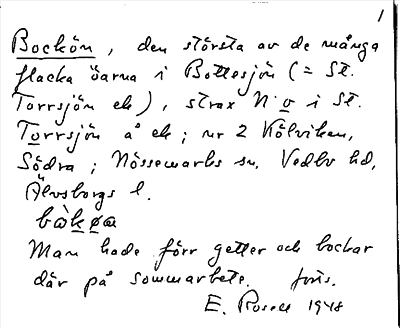 1
Bockön, den största av de många
flacka öarna i Bottesjön (= St.
Torrsjön ek), strax N o i St.
Torrsjön å ek; nr 2 Kölviken,
Södra; Nössemarks sn, Vedbo hd,
Älvsborgs l.
bàkøa
Man hade förr getter och bockar
där på sommarbete.
E. Rosell 1948